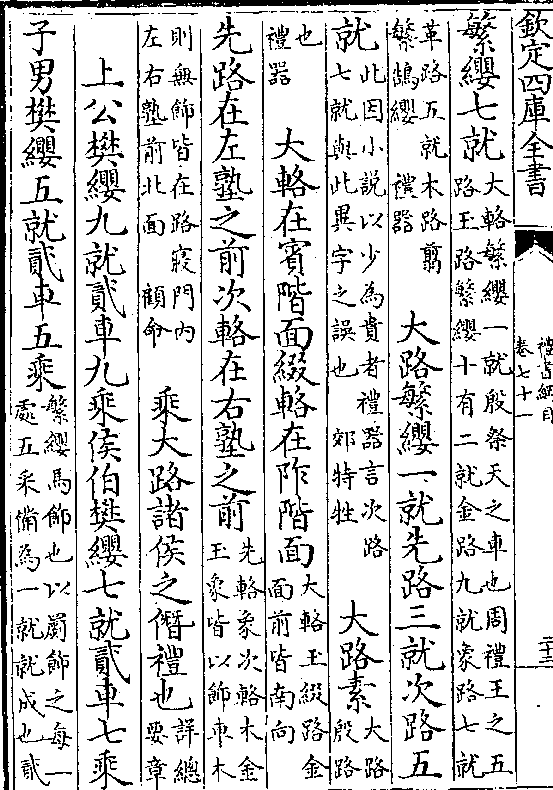 欽定四庫全書
禮書綱目
卷七十一
二十三
繁纓七就大輅繁纓一就殷祭天之車也周禮王之五
路玉路繁纓十有二就金路九就象路七就
革路五就木路翦
繁鵠纓　禮器　大路繁纓一就先路三就次路五
就此因小說以少為貴者禮器言次路
七就與此異字之誤也　郊特牲　大路素大路
殷路
也
禮器　大輅在賓階面綴輅在阼階面大輅玉綴路金
面前皆南向
先路在左塾之前次輅在右塾之前先輅象次輅木金
玉象皆以飾車木
則無飾皆在路寢門內
左右塾前北面　顧命　乘大路諸侯之僭禮也詳總
要章
上公樊纓九就貳車九乘侯伯樊纓七就貳車七乘
子男樊纓五就貳車五乘繁纓馬飾也以罽飾之每一
處五采備為一就就成也貳